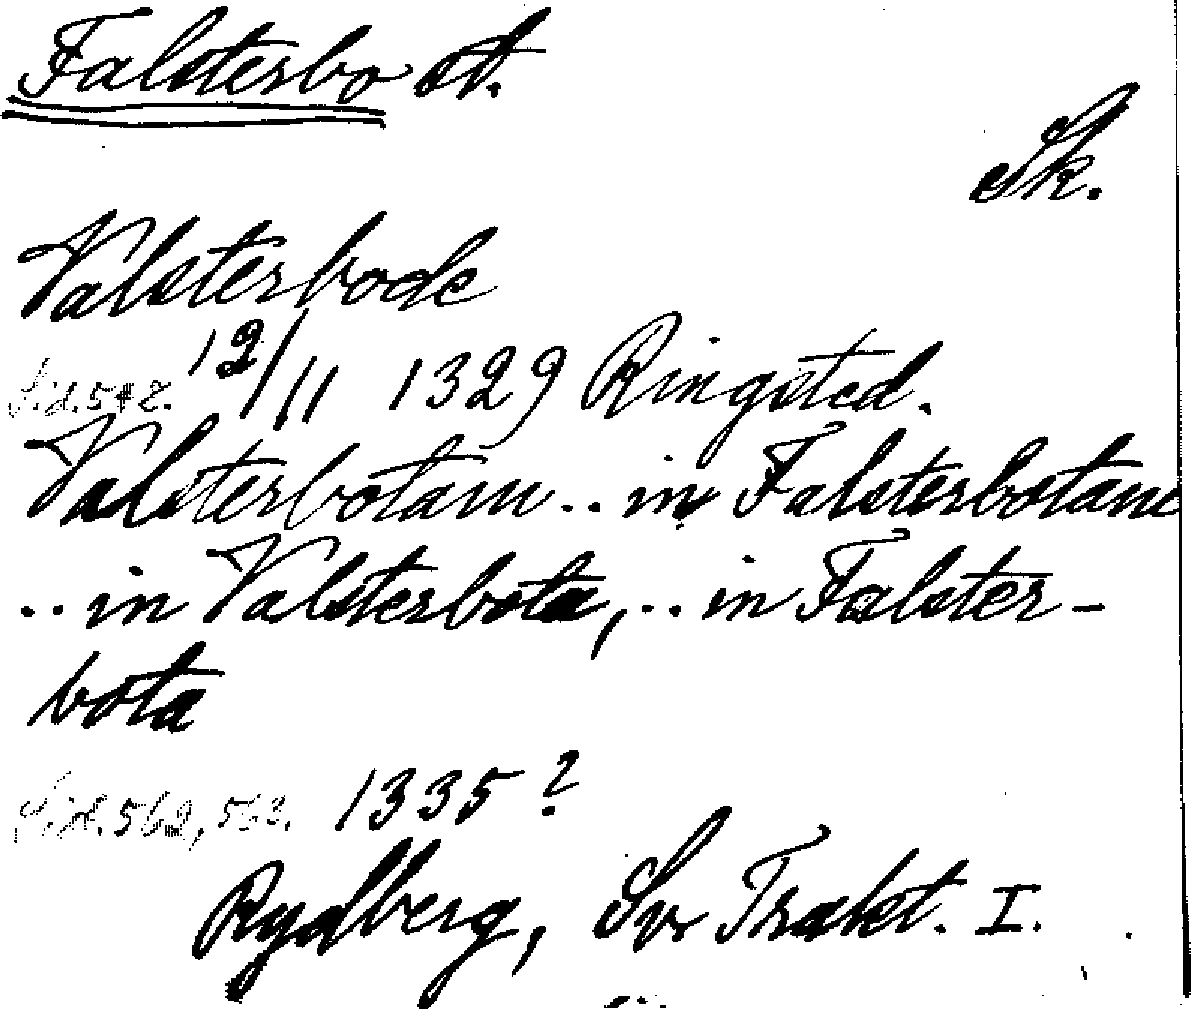 Falsterbo st.
Sk.
Valsterbode
Sid. 542. 12/11 1329 Ringsted.
Valsterbotam .. in Falsterbotam
.. in Valsterbota, .. in Falster-
bota
Sid. 562, 563. 1335?
Rydberg, Sv. Trakt. I.